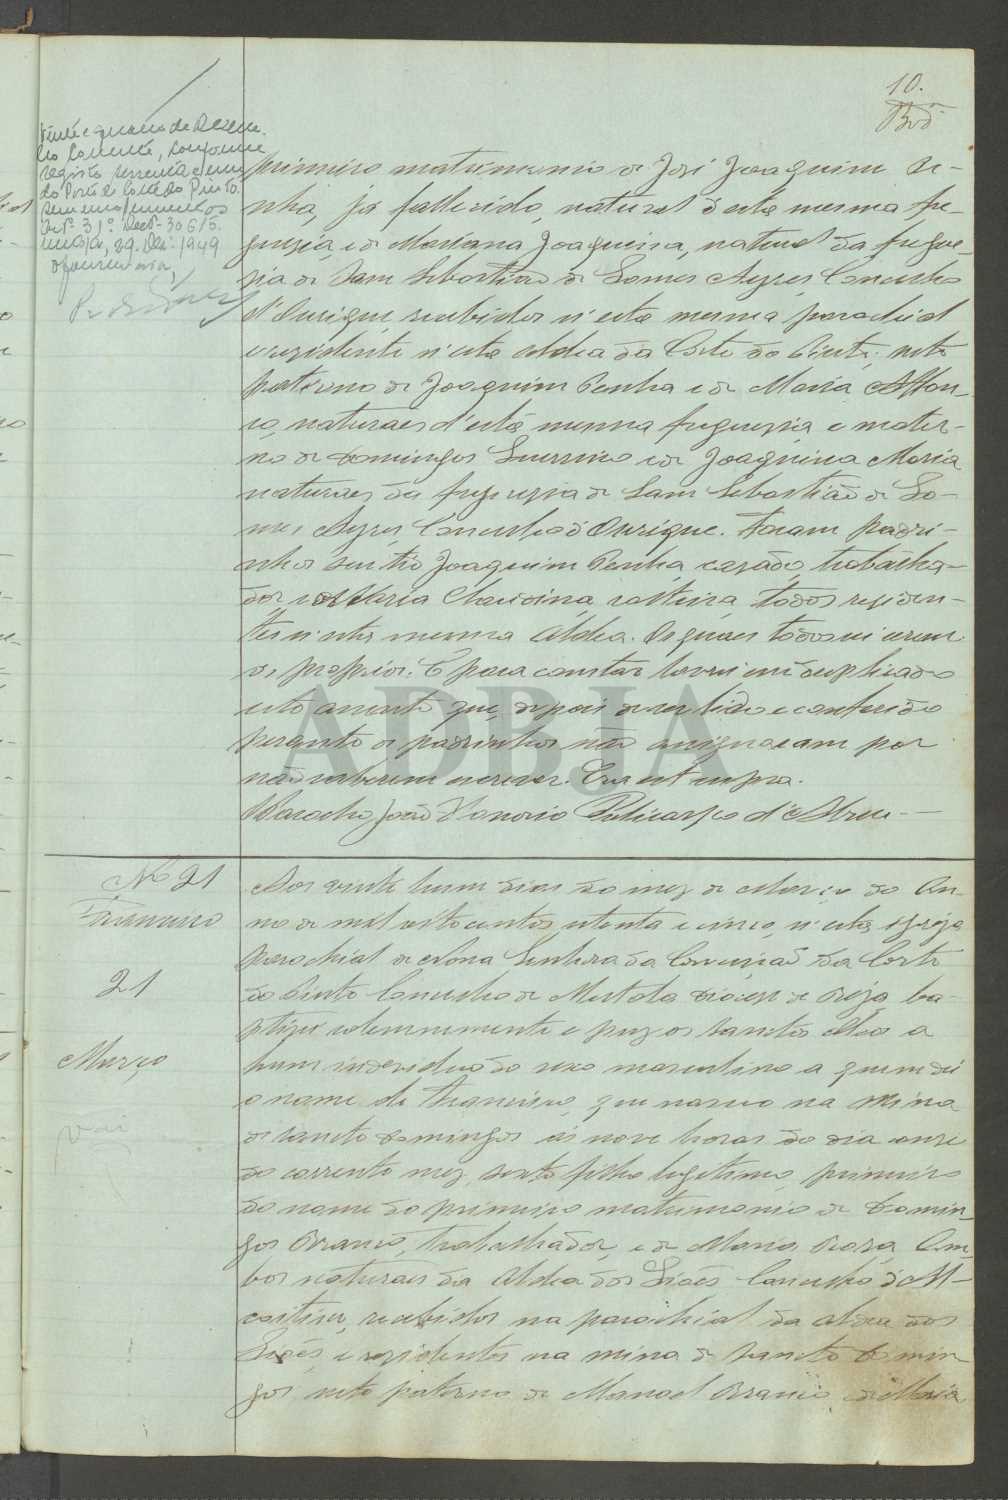 10.
vinte e quatro de Dezem-
bro corrente, conforme
registo
do Posto de Corte do Pinto.
Artº 31º Decº 30615.
29. Dezº 1949
primeiro matrimonio de José Joaquim Pe-
nha, já fallecido, natural d'esta mesma fre-
guezia, e de Marianna Joaquina, natural da fregue-
zia de Sam Sebastião de Gomes Ayres Concelho
d'Ourique, recebidos n'esta mesma parochial
e residente n'esta aldea da Corte do Pinto; neto
paterno de Joaquim Penha e de Maria Affon-
ço, naturaes d'esta mesma freguezia e mater-
no de Domingos Guerreiro e de Joaquina Maria
naturaes da freguezia de Sam Sebastião de Go-
mes Ayres, Concelho d'Ourique. Foram padri-
nhos seu tio Joaquim Penha, cazado, trabalha-
dor, e Maria Claudina, solteira, todos residen-
tes n'esta mesma Aldea. Os quaes todos sei serem
os proprios. E para constar lavrei em duplicado
este assento que, depois de ser lido e conferido
perante os padrinhos não assignaram por
não saberem escrever. Era ut supra.
O Parocho João Honorio Policarpo d'Abreu
Nº 21
Francisco
21
Março
Aos vinte hum dias do mez de Março do An-
no de mil oitocentos oitenta e cinco, n'esta egreja
parochial de Nossa Senhora da Conceição da Corte
do Pinto Concelho de Mertola diocese de Beja, ba-
ptizei solemnemente e puz os Sanctos Oleos a
hum individuo do sexo masculino a quem dei
o nome de Francisco, que nasceu na Mina
de Sancto Domingos ás nove horas do dia onze
do corrente mez, sexto filho legitimo, primeiro
do nome do primeiro matrimonio de Domin-
gos Branco, trabalhador, e de Maria Roza, Am-
bos naturaes da Aldea dos
recebidos na parochial da Aldea dos
e residentes na mina de Sancto Domin-
gos neto paterno de Manoel Branco e de Maria
ADBJA